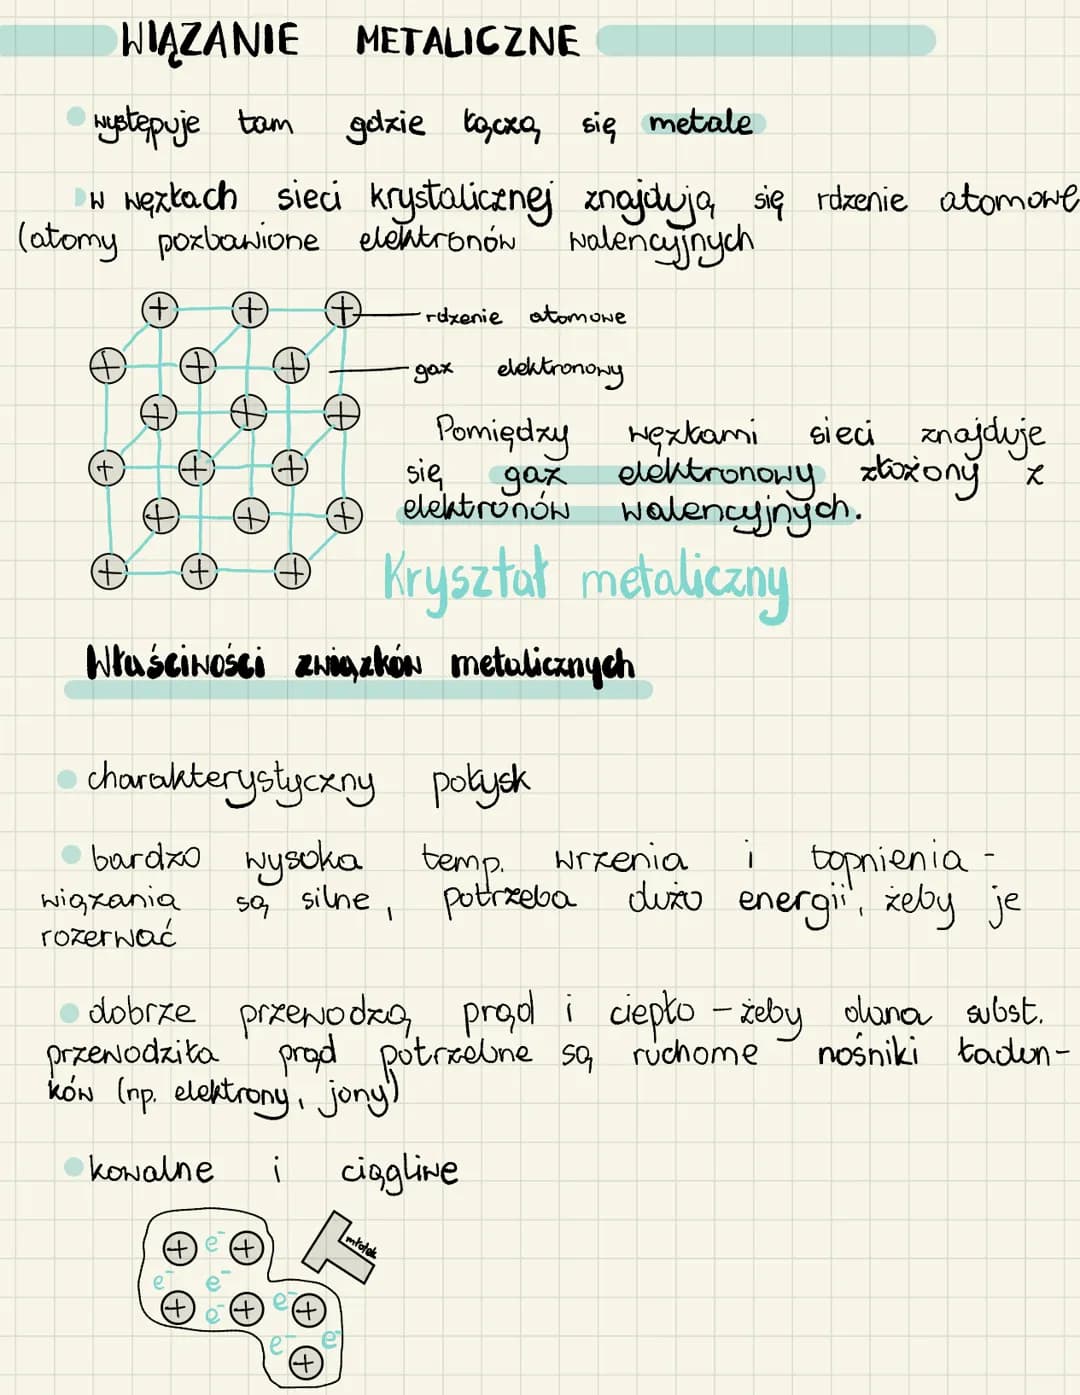 WIĄZANIE METALICZNE
występuje tam gdzie łączą się metale
w węzłach sieci krystalicznej znajdują się rdzenie atomowe
(atomy pozbawione elektronów walencyjnych
+ + +
rdzenie atomowe
+ + +
gaz elektronowy
+ + +
Pomiędzy węzłami sieci znajduje
+ + +
się gaz elektronowy złożony z
elektronów walencyjnych.
+ + +
+ + +
Kryształ metaliczny
Właściwości związków metalicznych
charakterystyczny połysk
bardzo wysoka temp. wrzenia i topnienia -
wiązania są silne, potrzeba dużo energii, żeby je
rozerwać
dobrze przewodzą prąd i ciepło - żeby dana subst.
przewodziła prąd potrzebne są ruchome nośniki ładun-
ków (np. elektrony, jony)
kowalne i ciągliwe
młotek
+ e⁻ +
e⁻ e⁻
+ e⁻ + e⁻ +
e⁻ e⁻
+